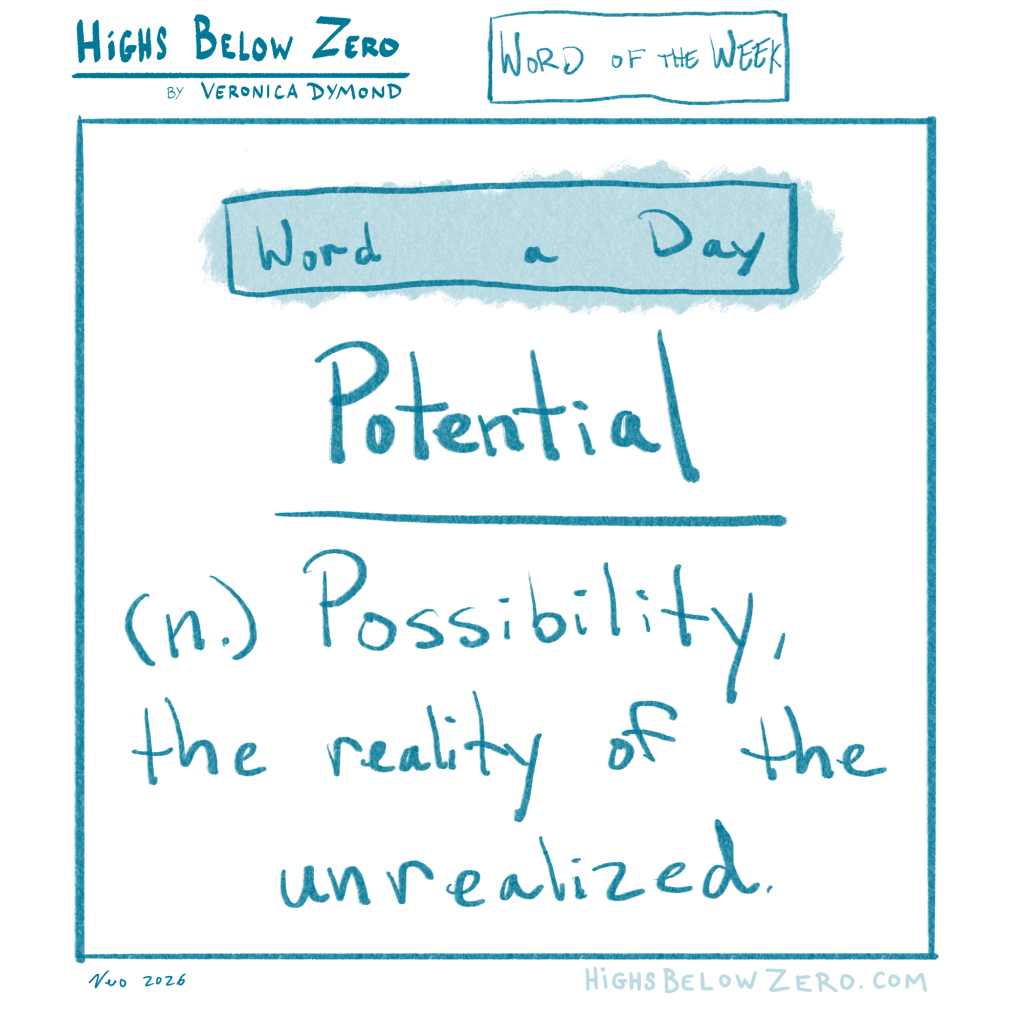 HIGHS BELOW ZERO
BY VERONICA DYMOND
WORD OF THE WEEK
Word a Day
Potential
(n.) Possibility,
the reality of the
unrealized.
2026
HIGHSBELOWZERO.COM